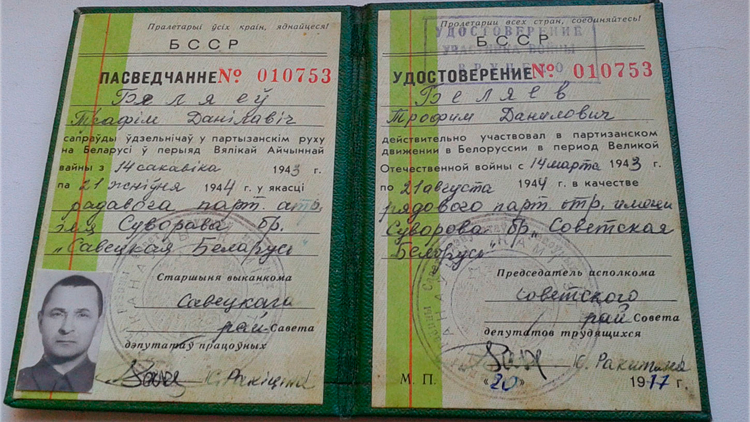 Пралетарыі ўсіх краін, яднайцеся!
БССР
ПАСВЕДЧАННЕ № 010753
Беляеў
Трафім Данілавіч
сапраўды ўдзельнічаў у партызанскім руху
на Беларусі ў перыяд Вялікай Айчыннай
вайны з 14 сакавіка 1943 г.
па 21 жніўня 1944 г. у якасці
радавога парт. атр.
імя Суворава бр.
„Савецкая Беларусь"
Старшыня выканкома
Савецкага
рай Савета
дэпутатаў працоўных
С. Ракіціна
Пролетарии всех стран, соединяйтесь!
УДОСТОВЕРЕНИЕ
УЧАСТНИКА ВОЙНЫ
ВРУЧЕНО
БССР
УДОСТОВЕРЕНИЕ № 010753
Беляев
Трофим Данилович
действительно участвовал в партизанском
движении в Белоруссии в период Великой
Отечественной войны с 14 марта 1943 г.
по 21 августа 1944 г. в качестве
рядового парт. отр. имени
Суворова бр. „Советская
Беларусь"
Председатель исполкома
Советского
рай Совета
депутатов трудящихся
С. Ракитина
М. П. «20» 1977 г.